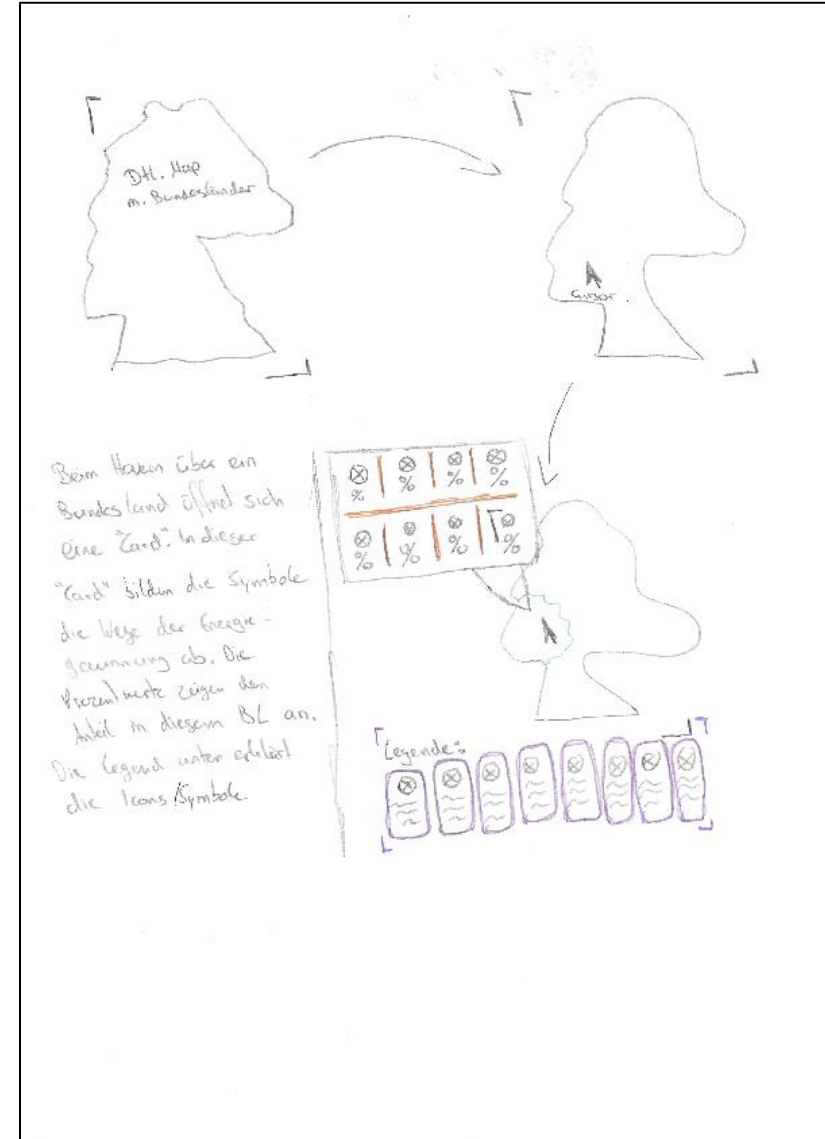 Dtl. Map
m. Bundesländer
Cursor
Beim Hovern über ein
Bundesland öffnet sich
eine "Card". In dieser
"Card" bilden die Symbole
die Wege der Energie-
gewinnung ab. Die
Prozentwerte zeigen den
Anteil in diesem BL an.
Die Legend unten erklärt
die Icons/Symbole.
% % % %
% % % %
Legende: